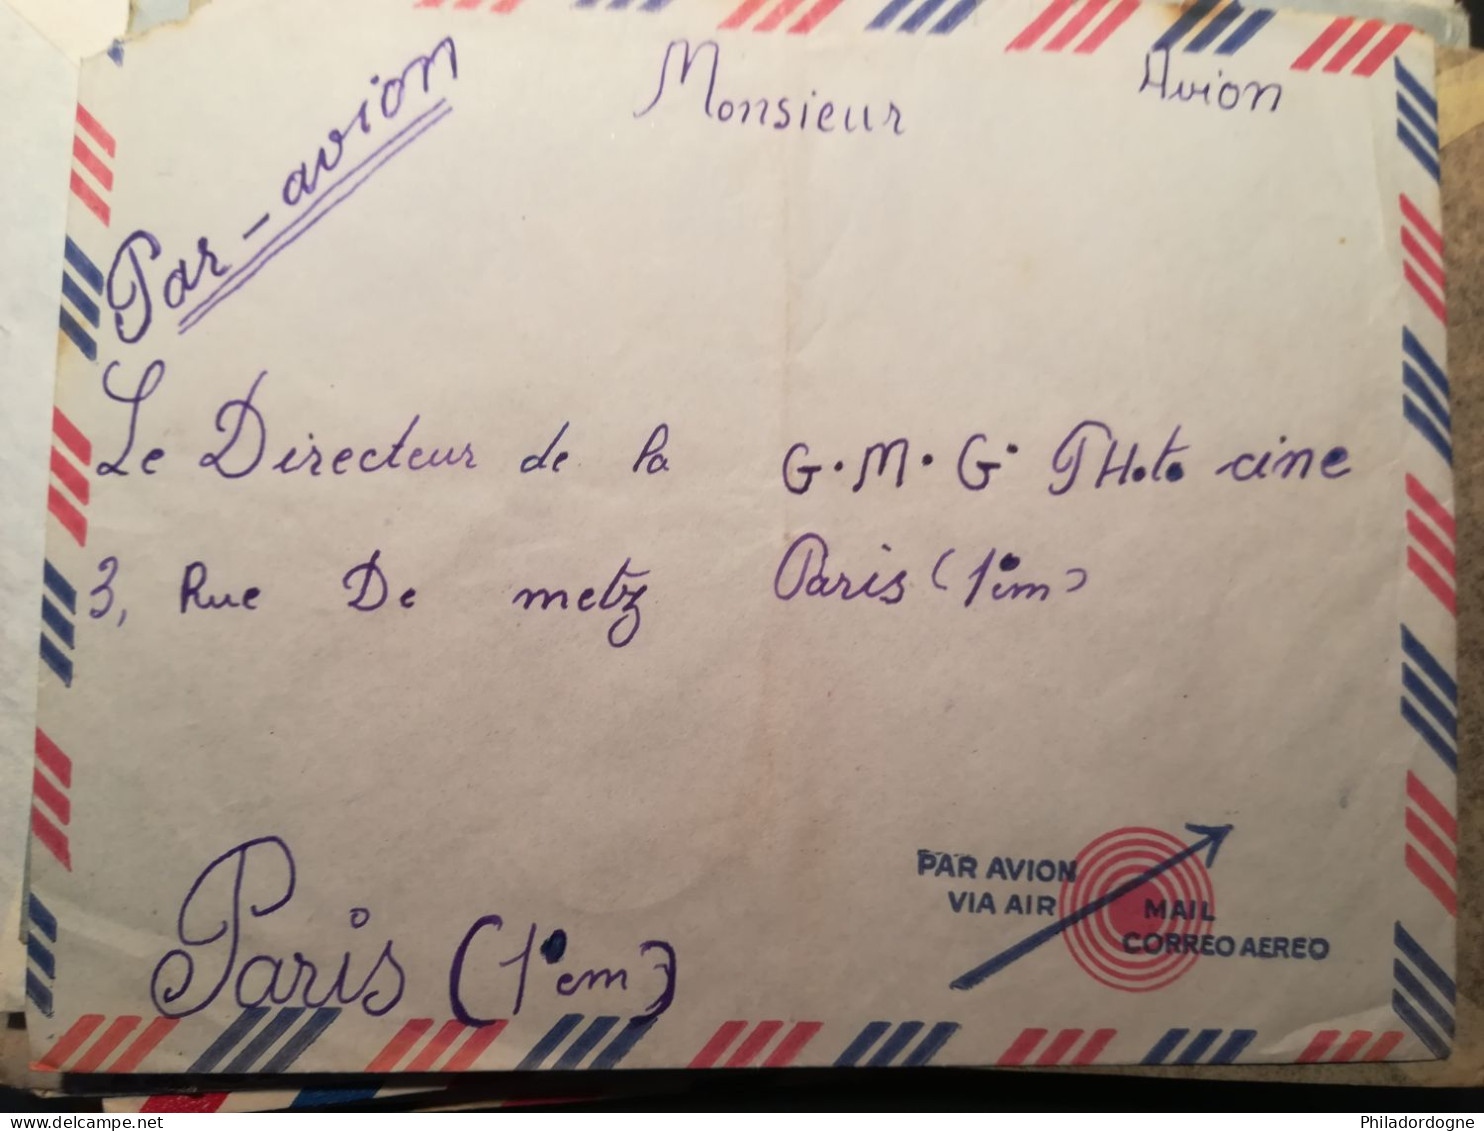 Par-avion
Monsieur
Avion
Le Directeur de la G.M.G. PHoto cine
3, Rue De metz Paris (1°em)
Paris (1°em)
PAR AVION
VIA AIR MAIL
CORREO AEREO
Philadordogne